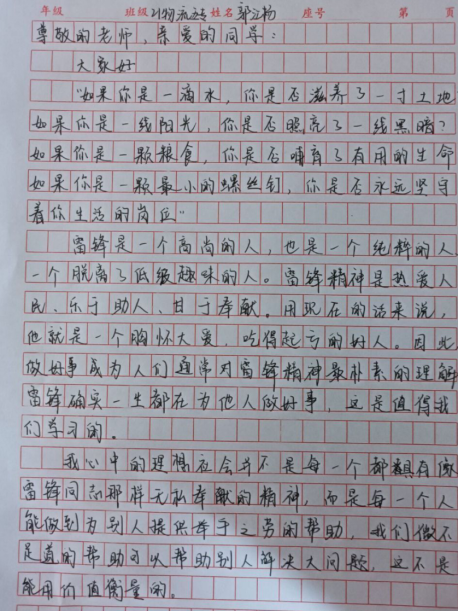 年级 班级 计物氛选专 姓名 郭江杨 座号 第 页
尊敬的老师，亲爱的同学：
大家好
"如果你是一滴水，你是否滋养了一寸土地
如果你是一线阳光，你是否照亮了一线黑暗？
如果你是一颗粮食，你是否哺育了有用的生命
如果你是一颗最小的螺丝钉，你是否永远坚守
着你生活的岗位"
雷锋是一个高尚的人，也是一个纯粹的人
一个脱离了低级趣味的人。雷锋精神是热爱人
民、乐于助人、甘于奉献。用现在的话来说，
他就是一个胸怀大爱，吃得起亏的好人。因此
做好事成为人们通常对雷锋精神最朴素的理解
雷锋确实一生都在为他人做好事，这是值得我
们学习的。
我心中的理想社会并不是每一个都具有像
雷锋同志那样无私奉献的精神，而是每一个人
能做到为别人提供举手之劳的帮助，我们微不
足道的帮助可以帮助别人解决大问题，这不是
能用价值衡量的。